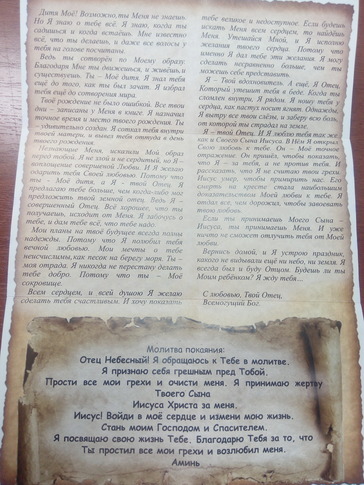 Дитя Моё! Возможно, ты Меня не знаешь.
Но Я знаю о тебе всё. Я знаю, когда ты
садишься и когда встаёшь. Мне известно
всё, что ты делаешь, и даже все волосы у
тебя на голове посчитаны.
Ведь ты сотворён по Моему образу.
Благодаря Мне ты движешься, и живёшь, и
существуешь. Ты – Моё дитя. Я знал тебя
ещё до того, как ты был зачат. Я избрал
тебя ещё до сотворения мира.
Твоё рождение не было ошибкой. Все твои
дни – записаны у Меня в книге. Я назначил
точное время и место твоего рождения. Ты
– удивительно создан. Я соткал тебя внутри
твоей матери, и вывел тебя оттуда в день
твоего рождения.
Незнающие Меня, исказили Мой образ
перед тобой. Я не злой и не сердитый, но Я –
воплощение совершенной Любви. И Я желаю
одарить тебя Своей любовью. Потому что
ты – Моё дитя, а Я – твой Отец. Я
предлагаю тебе больше, чем когда-либо мог
предложить твой земной отец. Ведь Я –
совершенный Отец. Всё хорошее, что ты
получаешь, исходит от Меня. Я забочусь о
тебе, и дам тебе всё, что тебе надо.
Мои планы на твоё будущее всегда полны
надежды. Потому что Я полюбил тебя
вечной любовью. Мои мечты о тебе
неисчислимы, как песок на берегу моря. Ты –
моя отрада. Я никогда не перестану делать
тебе добро. Потому что ты – Моё
сокровище.
Всем сердцем, и всей душою Я желаю
сделать тебя счастливым. И хочу показать
тебе великое и недоступное. Если будешь
искать Меня всем сердцем, то найдёшь
Меня. Утешайся Мной, и Я исполню
желания твоего сердца. Потому что
именно Я дал тебе эти желания. Я могу
сделать несравненно больше, чем ты
можешь себе представить.
Я – Твой вдохновитель. А ещё, Я Отец,
Который утешит тебя в беде. Когда ты
сломлен внутри, Я рядом. Я ношу тебя у
сердца, как пастух носит ягнят. Однажды,
Я вытру все твои слёзы, и заберу всю боль,
от которой ты страдал на земле.
Я – твой Отец. И Я люблю тебя так же,
как и Своего Сына Иисуса. В Нём Я открыл
Свою любовь к тебе. Он – Моё точное
отражение. Он пришёл, чтобы показать,
что Я – за тебя, а не против тебя. И
рассказать, что Я не считаю твои грехи.
Иисус умер, чтобы примирить нас. Его
смерть на кресте стала наибольшим
доказательством Моей любви к тебе. Я
отдал все, чем дорожил, чтобы завоевать
твою любовь.
Если ты принимаешь Моего Сына –
Иисуса, ты принимаешь Меня. И уже
ничто не сможет отлучить тебя от Моей
любви.
Вернись домой, и Я устрою праздник,
какого не видывали ещё ни небо, ни земля. Я
всегда был и буду Отцом. Будешь ли ты
Моим ребёнком? Я жду тебя...
С любовью, Твой Отец,
Всемогущий Бог.
Молитва покаяния:
Отец Небесный! Я обращаюсь к Тебе в молитве.
Я признаю себя грешным пред Тобой.
Прости все мои грехи и очисти меня. Я принимаю жертву
Твоего Сына
Иисуса Христа за меня.
Иисус! Войди в моё сердце и измени мою жизнь.
Стань моим Господом и Спасителем.
Я посвящаю свою жизнь Тебе. Благодарю Тебя за то, что
Ты простил все мои грехи и возлюбил меня.
Аминь